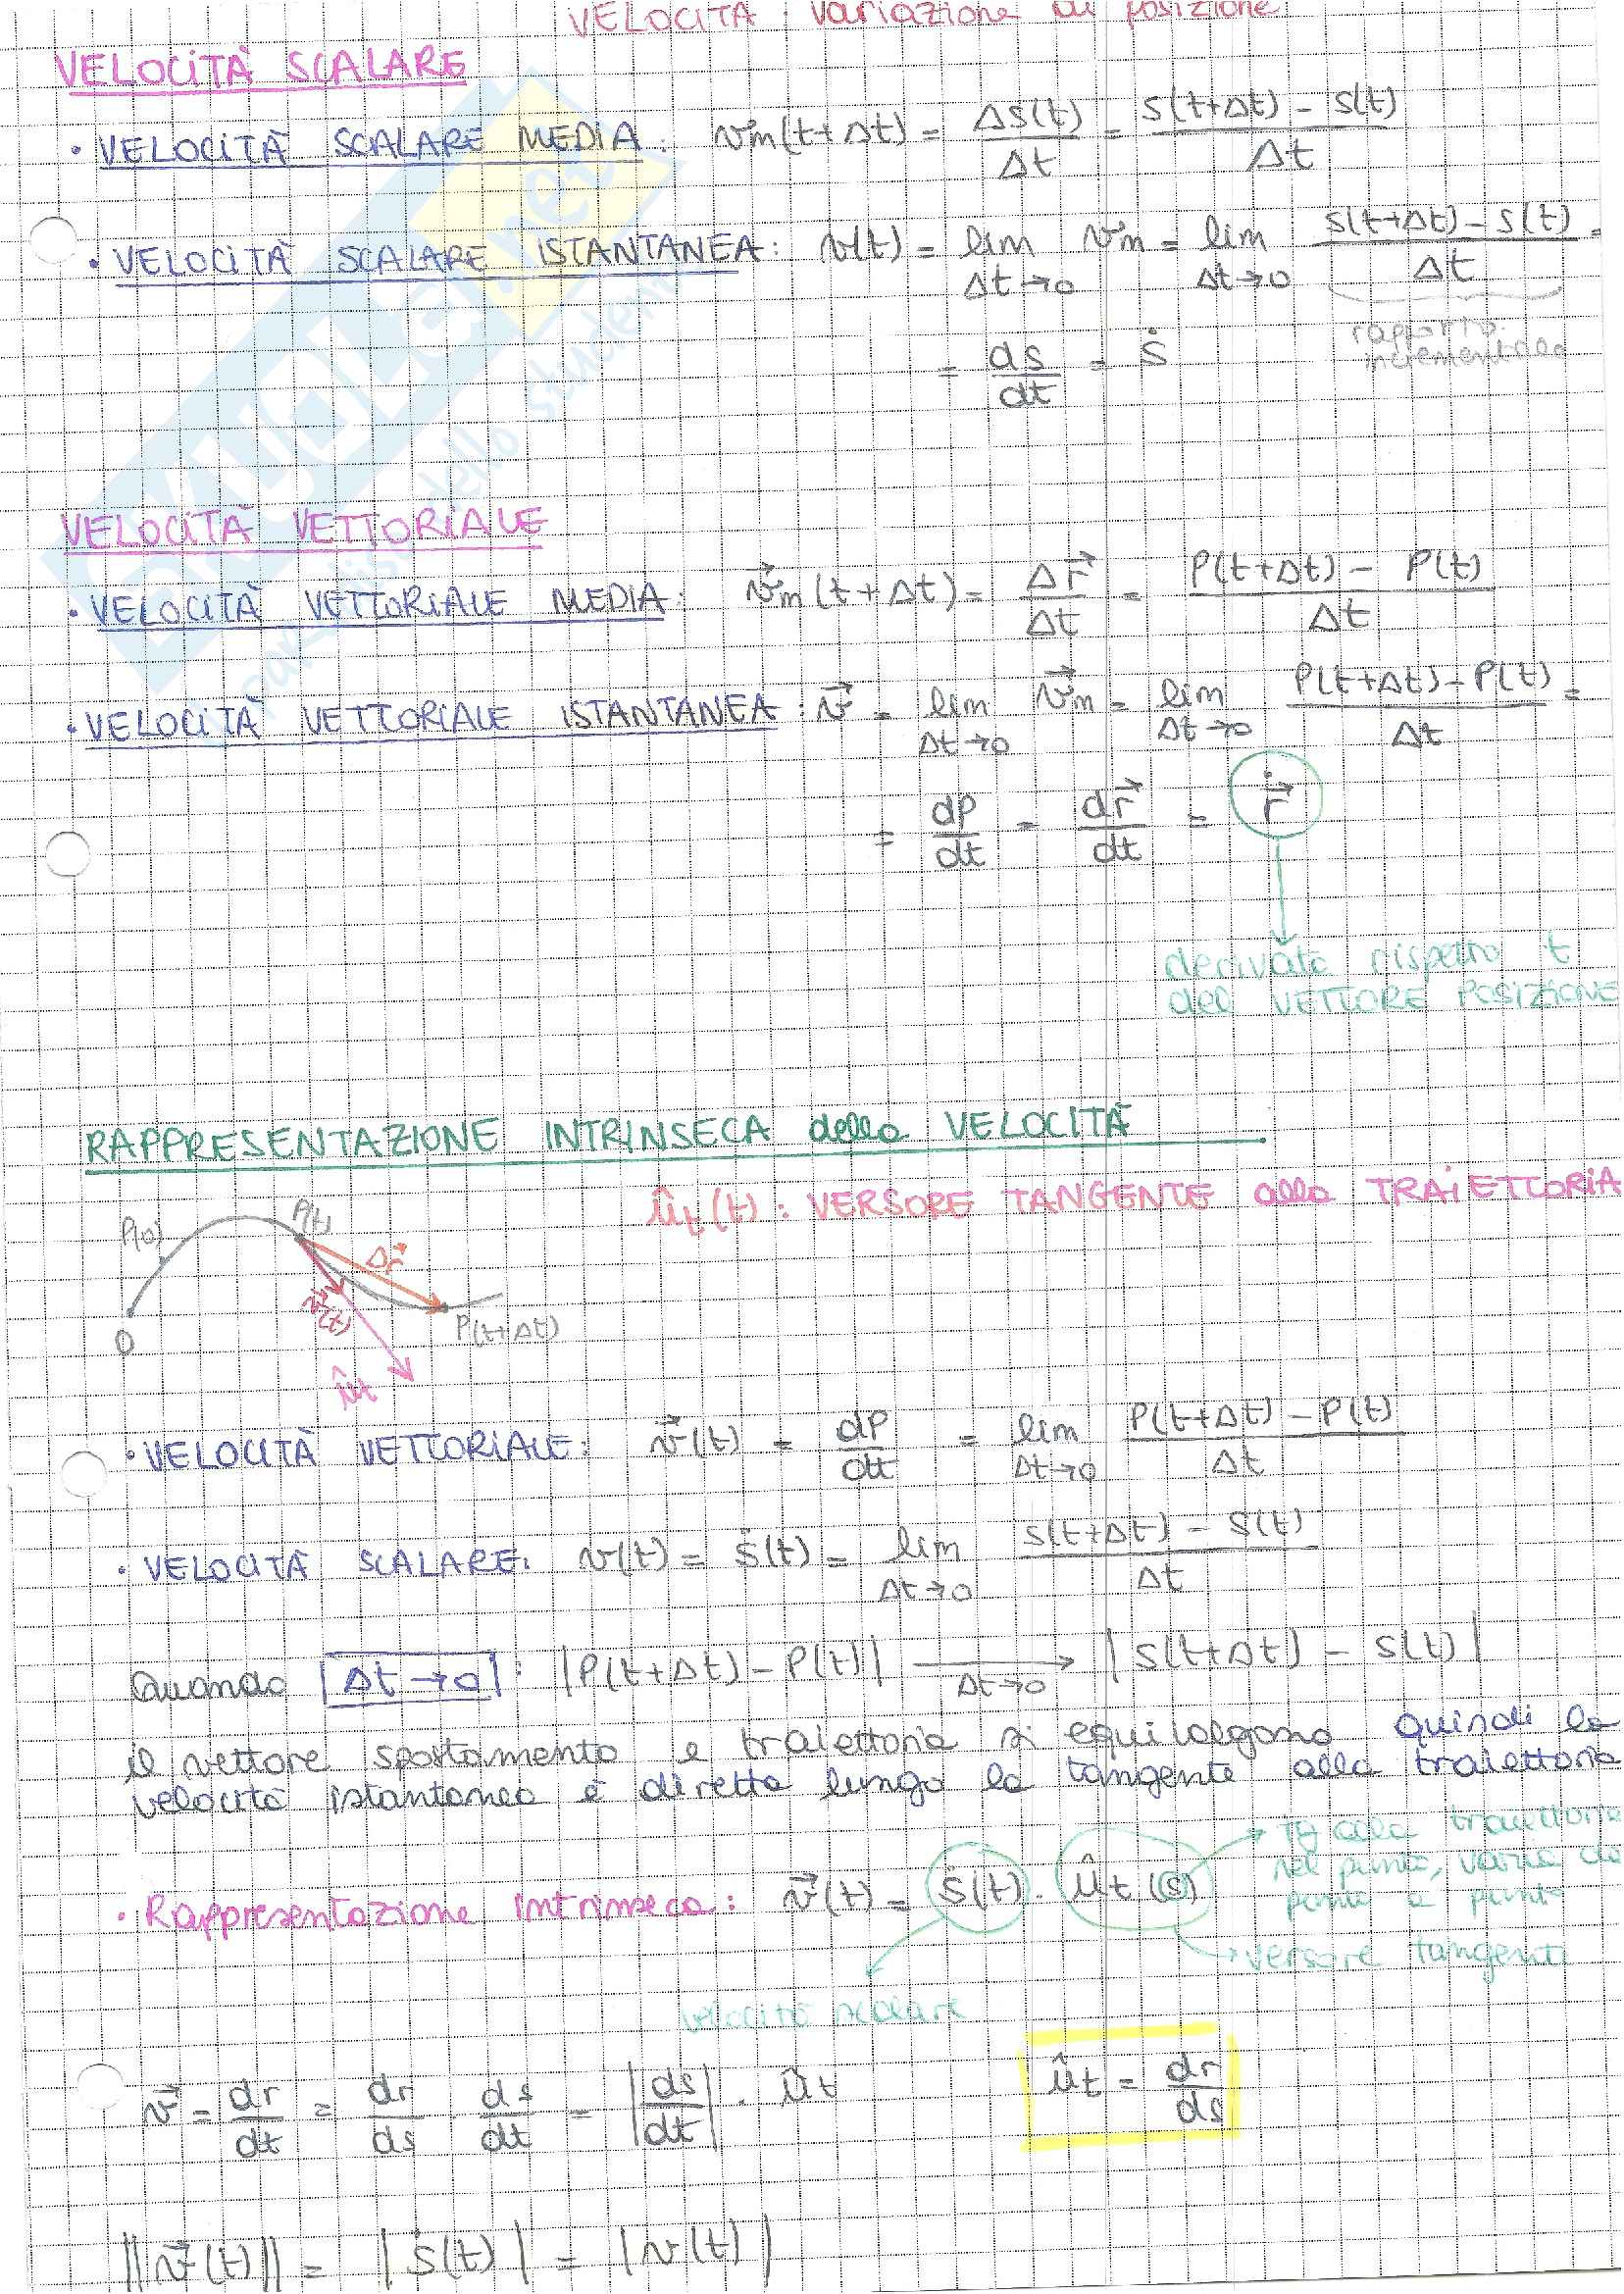 VELOCITÀ : variazione di posizione
VELOCITÀ SCALARE
• VELOCITÀ SCALARE MEDIA: vm(t+Δt) = Δs(t)/Δt = s(t+Δt) - s(t)/Δt
• VELOCITÀ SCALARE ISTANTANEA: v(t) = lim Δt→0 vm = lim Δt→0 s(t+Δt) - s(t)/Δt =
= ds/dt = ṡ
rapporto
incrementale
VELOCITÀ VETTORIALE
• VELOCITÀ VETTORIALE MEDIA: v⃗m(t+Δt) = Δr⃗/Δt = P(t+Δt) - P(t)/Δt
• VELOCITÀ VETTORIALE ISTANTANEA: v⃗ = lim Δt→0 v⃗m = lim Δt→0 P(t+Δt) - P(t)/Δt =
= dP/dt = dr⃗/dt = ṙ⃗
derivata rispetto t
del VETTORE POSIZIONE
RAPPRESENTAZIONE INTRINSECA della VELOCITÀ
ût(t): VERSORE TANGENTE alla TRAIETTORIA
P(0)
P(t)
Δr⃗
v⃗(t)
P(t+Δt)
O
ût
• VELOCITÀ VETTORIALE: v⃗(t) = dP/dt = lim Δt→0 P(t+Δt) - P(t)/Δt
• VELOCITÀ SCALARE: v(t) = ṡ(t) = lim Δt→0 s(t+Δt) - s(t)/Δt
Quando Δt→0 : |P(t+Δt) - P(t)| ⟶ Δt→0 |s(t+Δt) - s(t)|
il vettore spostamento e traiettoria si equivalgono quindi la
velocità istantanea è diretta lungo la tangente alla traiettoria
• Rappresentazione intrinseca: v⃗(t) = ṡ(t) · ût(s)
tg alla traiettoria
nel punto, varia da
punto a punto
versore tangente
velocità scalare
v⃗ = dr/dt = dr/ds · ds/dt = |ds/dt| · ût
ût = dr/ds
||v⃗(t)|| = |ṡ(t)| = |v(t)|